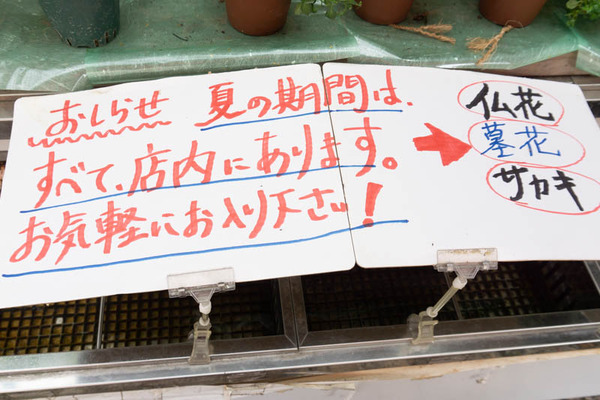 おしらせ 夏の期間は、
すべて、店内にあります。
お気軽にお入り下さい!
仏花
墓花
サカキ